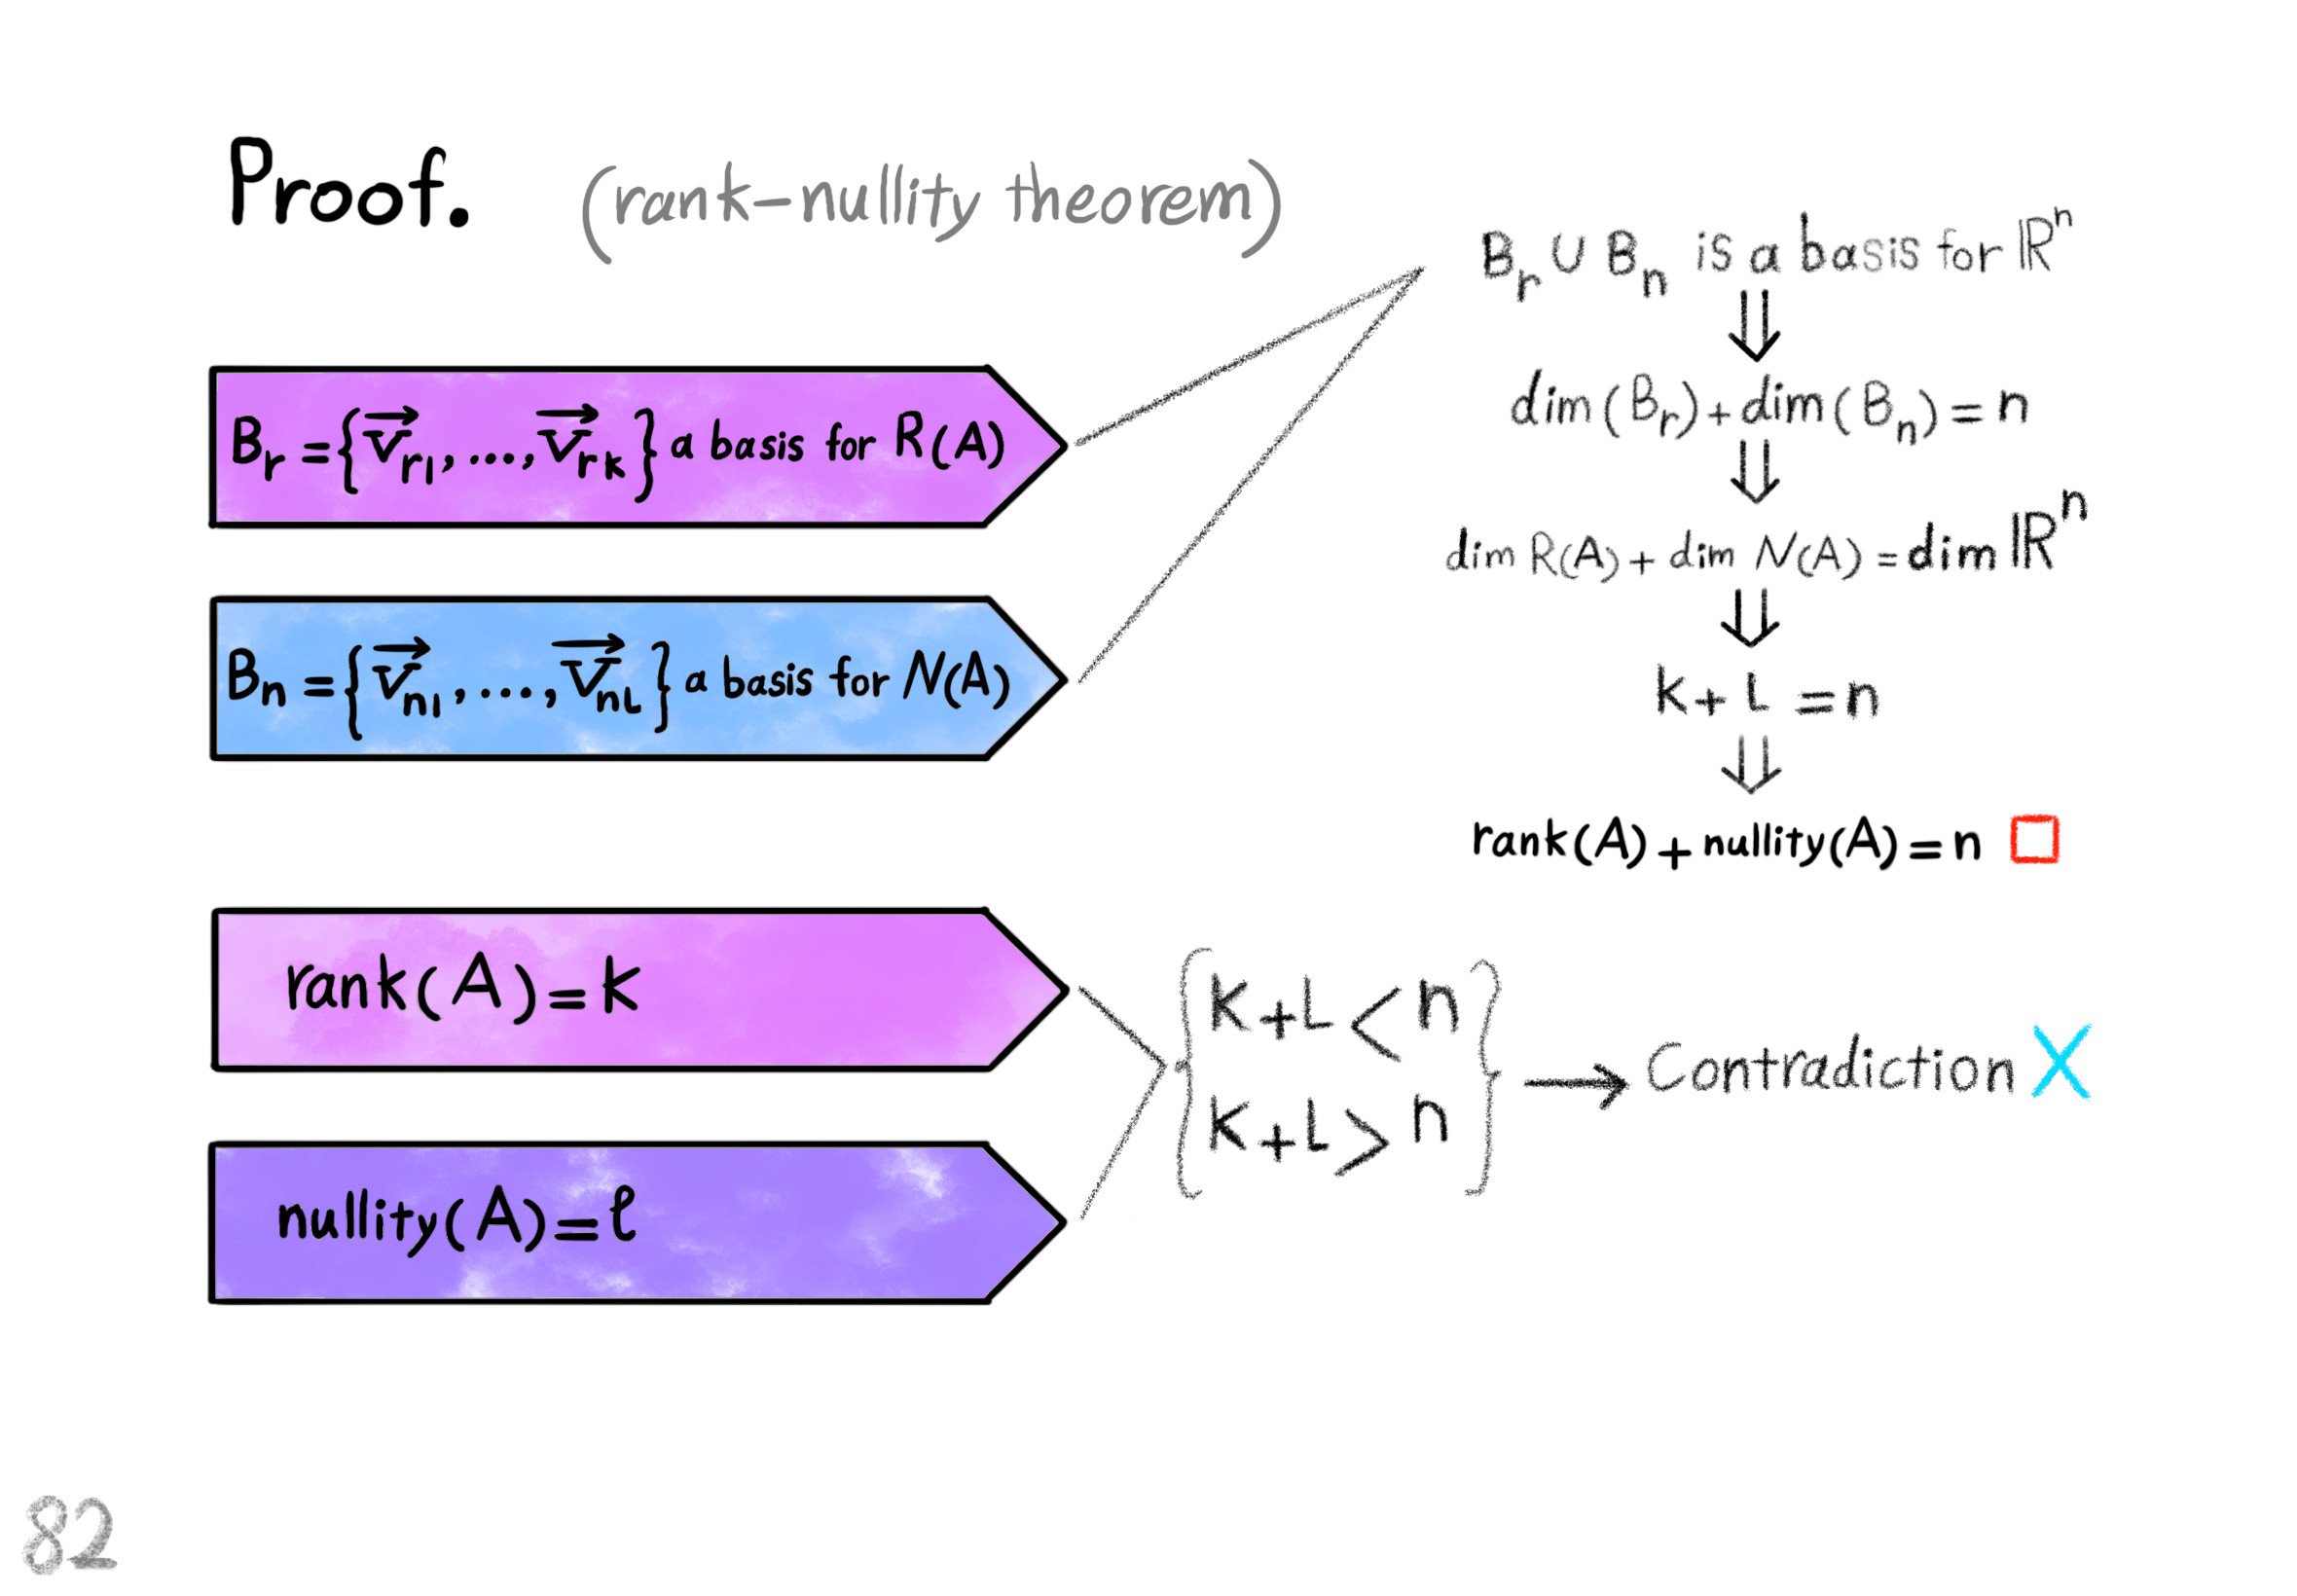 Proof. (rank-nullity theorem)
B_r = {v⃗_r1, ..., v⃗_rk} a basis for R(A)
B_n = {v⃗_n1, ..., v⃗_nL} a basis for N(A)
B_r ∪ B_n is a basis for ℝⁿ
⇓
dim(B_r) + dim(B_n) = n
⇓
dim R(A) + dim N(A) = dim ℝⁿ
⇓
k + L = n
⇓
rank(A) + nullity(A) = n □
rank(A) = k
nullity(A) = ℓ
{k + L < n
k + L > n}
→ Contradiction X
82